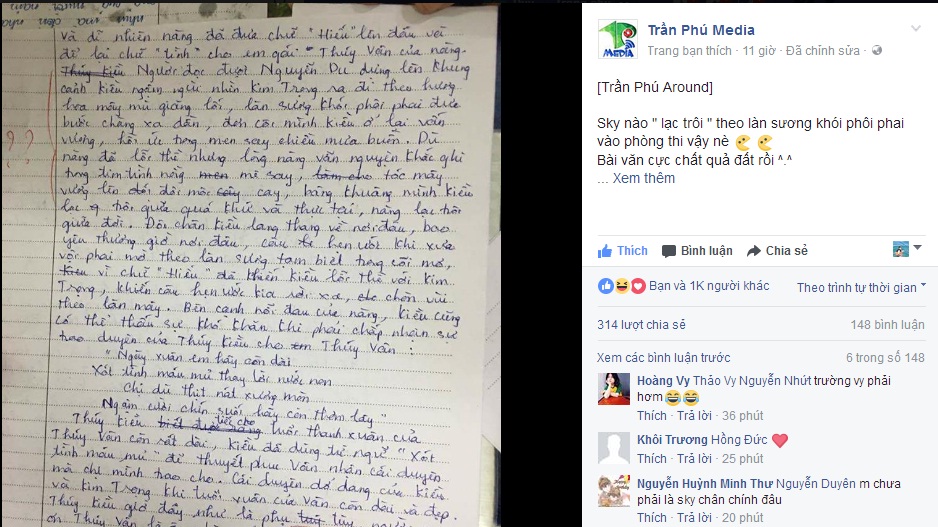 và dĩ nhiên nàng đã đưa chữ "Hiếu" lên đầu với
để lại chữ "tình" cho em gái: "Thúy Vân của nàng.
Thúy kiều Người đọc được Nguyễn Du dựng lên khung
cảnh kiều ngậm ngùi nhìn kim Trọng ra đi theo hướng
hoa mây mù giăng lối, làn sương khói phôi phai đưa
bước chàng xa dần, đơn côi mình kiều ở lại vấn
vương, hồi ức trong men say chiều mưa buồn. Dù
nàng đã lỡ thề nhưng lòng nàng vẫn nguyên khắc ghi
trong tim tình nồng men mê say, làm cho tóc mây
vương lên đôi đôi môi cay cay, bâng khuâng mình kiều
lạc trôi giữa quá khứ và thực tại, nàng lạc trôi
giữa đời. Đôi chân kiều lang thang về nơi đâu, bao
yêu thương giờ nơi đâu, câu hẹn ước khi xưa
vội phai mờ theo làn sương tam biệt trong cõi mơ,
vì chữ "Hiếu" đã khiến kiều lỡ thề với kim
Trọng, khiến câu hẹn ước kia rời xa, chôn vùi
theo làn mây. Bên cạnh nỗi đau của nàng, kiều cũng
có thể thấu sự khó khăn khi phải chấp nhận sự
trao duyên của Thúy kiều cho em Thúy Vân:
"Ngày xuân em hãy còn dài
Xót tình máu mủ thay lời nước non
Chị dù thịt nát xương mòn
Ngậm cười chín suối hãy còn thơm lây"
Thúy kiều biết được tuổi thanh xuân của
Thúy Vân còn rất dài, kiều đã dùng từ ngữ "Xót
tình máu mủ" để thuyết phục Vân nhận cái duyên
mà chị mình trao cho. Cái duyên dở dang của kiều
và kim Trọng khi tuổi xuân của Vân còn dài và đẹp.
Thúy kiều giờ đây như là phụ
Trần Phú Media
Trang bạn thích · 11 giờ · Đã chỉnh sửa ·
[Trần Phú Around]
Sky nào " lạc trôi " theo làn sương khói phôi phai
vào phòng thi vậy nè
Bài văn cực chất quả đất rồi ^.^
... Xem thêm
Thích Bình luận Chia sẻ
Bạn và 1K người khác Theo trình tự thời gian
314 lượt chia sẻ 148 bình luận
Xem các bình luận trước 6 trong số 148
Hoàng Vy Thảo Vy Nguyễn Nhứt trường vy phải
hơm
Thích · Trả lời · 36 phút
Khôi Trương Hồng Đức
Thích · Trả lời · 25 phút
Nguyễn Huỳnh Minh Thư Nguyễn Duyên m chưa
phải là sky chân chính đâu
Thích · Trả lời · 20 phút